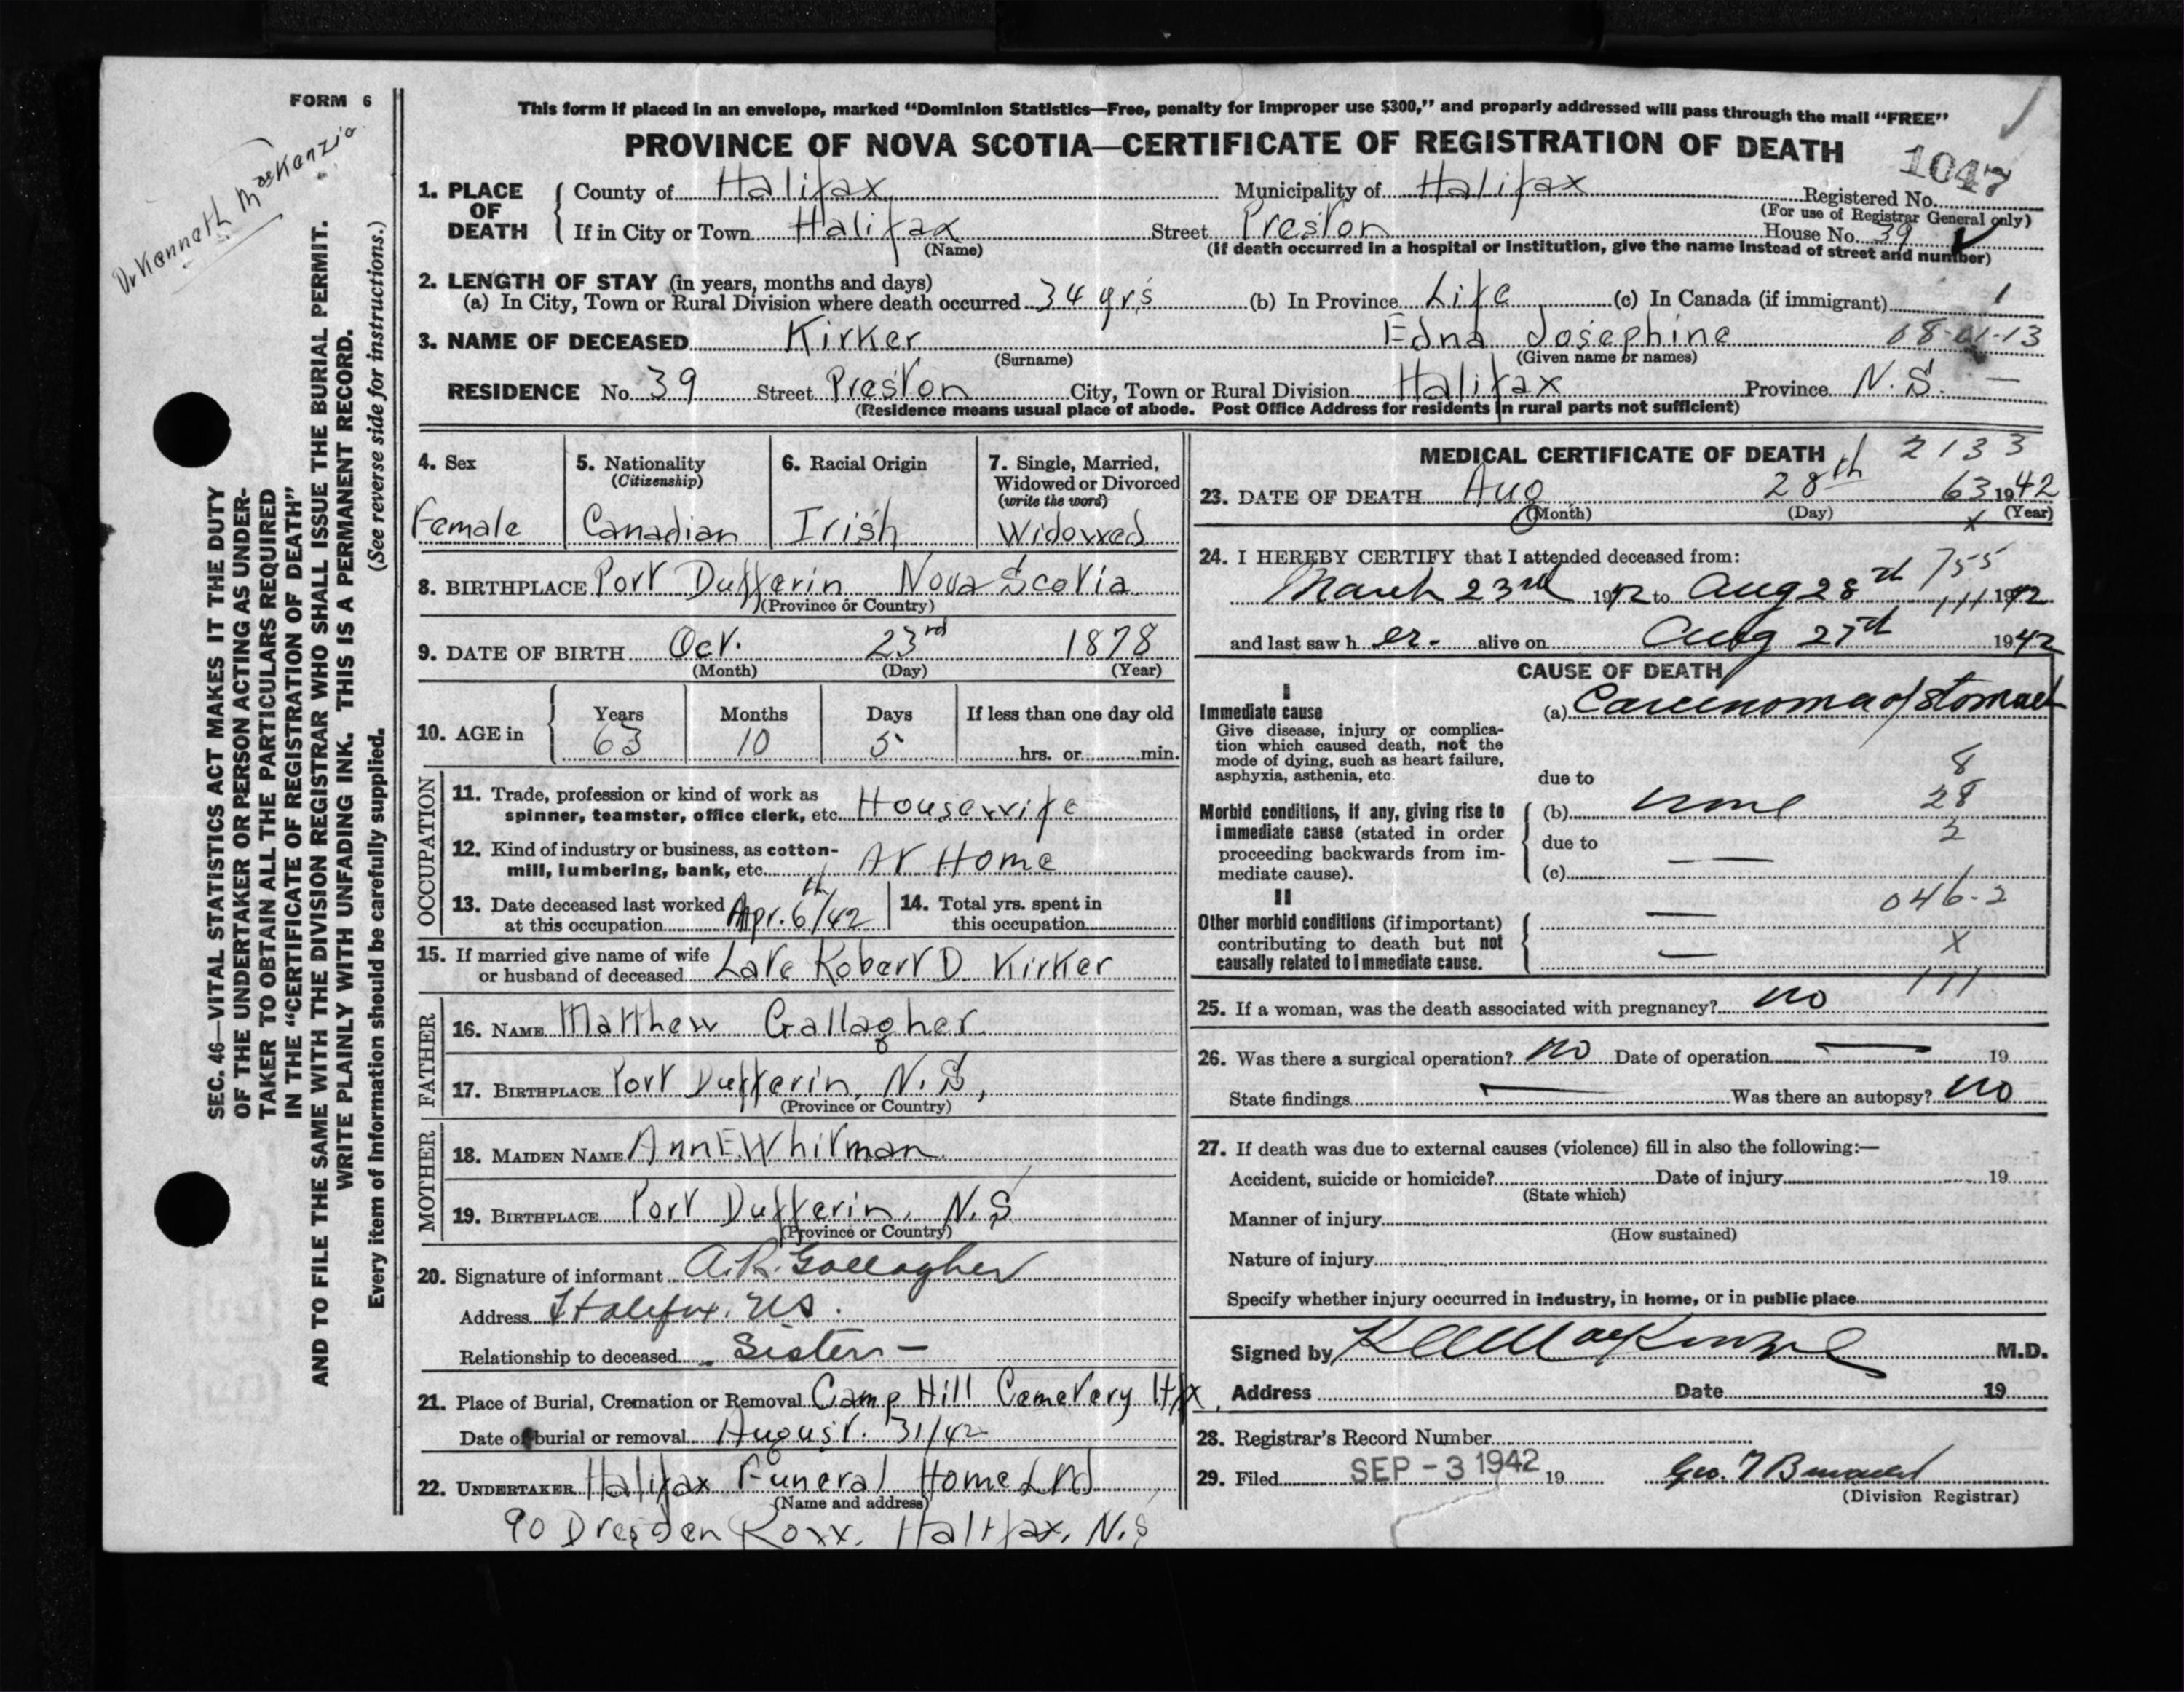 FORM 6
Dr Kenneth MacKenzie
SEC. 46—VITAL STATISTICS ACT MAKES IT THE DUTY
OF THE UNDERTAKER OR PERSON ACTING AS UNDER-
TAKER TO OBTAIN ALL THE PARTICULARS REQUIRED
IN THE "CERTIFICATE OF REGISTRATION OF DEATH"
AND TO FILE THE SAME WITH THE DIVISION REGISTRAR WHO SHALL ISSUE THE BURIAL PERMIT.
WRITE PLAINLY WITH UNFADING INK. THIS IS A PERMANENT RECORD.
Every item of information should be carefully supplied. (See reverse side for instructions.)
This form if placed in an envelope, marked "Dominion Statistics—Free, penalty for improper use $300," and properly addressed will pass through the mail "FREE"
PROVINCE OF NOVA SCOTIA—CERTIFICATE OF REGISTRATION OF DEATH
1047
1. PLACE OF DEATH County of Halifax Municipality of Halifax Registered No.
(For use of Registrar General only)
If in City or Town Halifax Street Preston House No. 39
(Name) (If death occurred in a hospital or institution, give the name instead of street and number)
2. LENGTH OF STAY (in years, months and days)
(a) In City, Town or Rural Division where death occurred 34 yrs (b) In Province Life (c) In Canada (if immigrant) 1
3. NAME OF DECEASED Kirker Edna Josephine 08-01-13
(Surname) (Given name or names)
RESIDENCE No. 39 Street Preston City, Town or Rural Division Halifax Province N.S.
(Residence means usual place of abode. Post Office Address for residents in rural parts not sufficient)
4. Sex 5. Nationality 6. Racial Origin 7. Single, Married,
(Citizenship) Widowed or Divorced
(write the word)
Female Canadian Irish Widowed
8. BIRTHPLACE Port Dufferin Nova Scotia
(Province or Country)
9. DATE OF BIRTH Oct. 23rd 1878
(Month) (Day) (Year)
10. AGE in Years Months Days If less than one day old
63 10 5 hrs. or min.
OCCUPATION
11. Trade, profession or kind of work as
spinner, teamster, office clerk, etc. Housewife
12. Kind of industry or business, as cotton-
mill, lumbering, bank, etc. At Home
13. Date deceased last worked 14. Total yrs. spent in
at this occupation Apr. 6th/42 this occupation
15. If married give name of wife
or husband of deceased Late Robert D. Kirker
FATHER
16. NAME Matthew Gallagher
17. BIRTHPLACE Port Dufferin, N.S,
(Province or Country)
MOTHER
18. MAIDEN NAME Ann E. Whitman
19. BIRTHPLACE Port Dufferin, N.S
(Province or Country)
20. Signature of informant A.R. Gallagher
Address Halifax, NS.
Relationship to deceased Sister —
21. Place of Burial, Cremation or Removal Camp Hill Cemetery Hfx.
Date of burial or removal August. 31/42
22. UNDERTAKER Halifax Funeral Home Ltd
(Name and address)
90 Dresden Row. Halifax, N.S
MEDICAL CERTIFICATE OF DEATH 2133
23. DATE OF DEATH Aug 28th 63 1942
(Month) (Day) x (Year)
24. I HEREBY CERTIFY that I attended deceased from:
755
March 23rd 1942 to Aug 28th 111 1942
and last saw her- alive on Aug 27th 1942
CAUSE OF DEATH
I
Immediate cause (a) Carcinoma of Stomach
Give disease, injury or complica-
tion which caused death, not the
mode of dying, such as heart failure,
asphyxia, asthenia, etc. due to 8
Morbid conditions, if any, giving rise to (b) none 28
immediate cause (stated in order due to 2
proceeding backwards from im-
mediate cause). (c)
II 046-2
Other morbid conditions (if important)
contributing to death but not X
causally related to immediate cause.
111
25. If a woman, was the death associated with pregnancy? no
26. Was there a surgical operation? no Date of operation — 19
State findings — Was there an autopsy? no
27. If death was due to external causes (violence) fill in also the following:—
Accident, suicide or homicide? Date of injury 19
(State which)
Manner of injury
(How sustained)
Nature of injury
Specify whether injury occurred in industry, in home, or in public place
Signed by MacKenzie M.D.
Address Date 19
28. Registrar's Record Number
29. Filed SEP - 3 1942 19 Geo.
(Division Registrar)